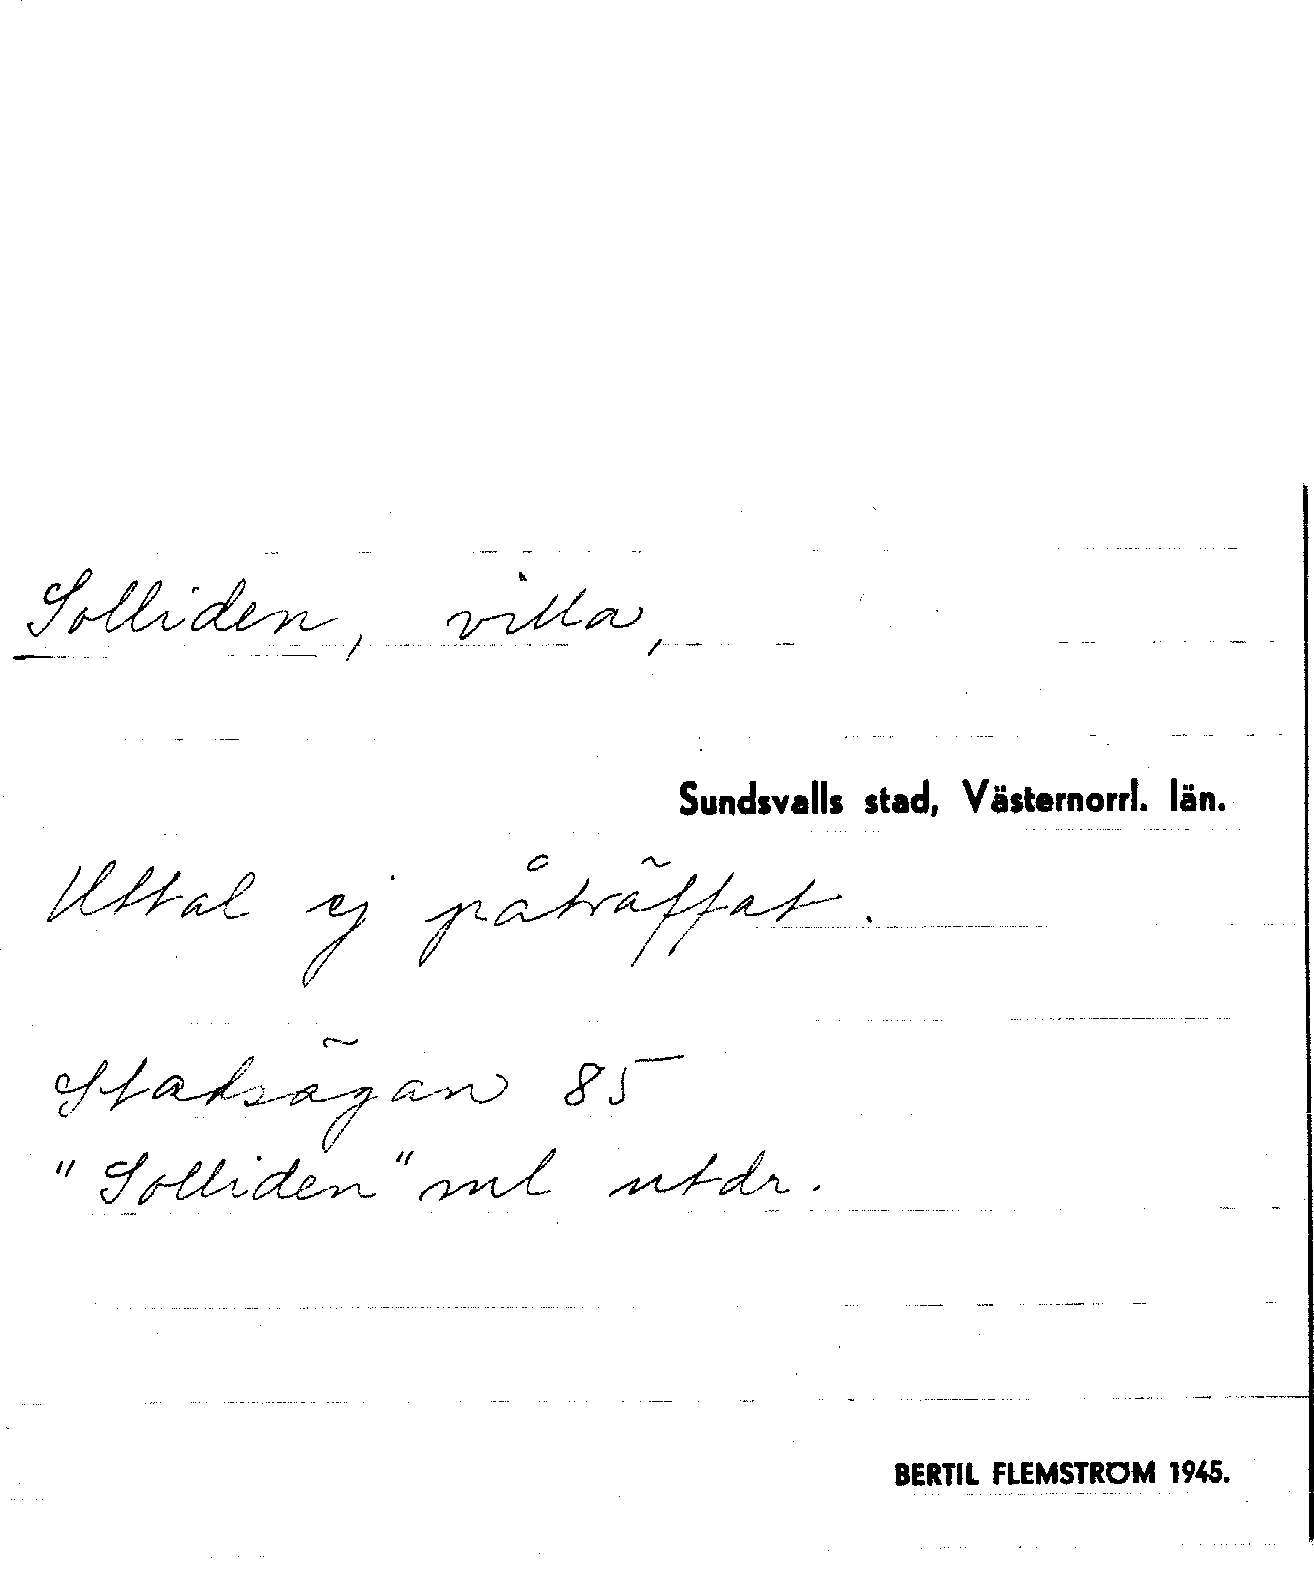 Solliden, villa,
Sundsvalls stad, Västernorrl. län.
Uttal ej påträffat.
Stadsägan 85
"Solliden" ml utdr.
BERTIL FLEMSTRÖM 1945.